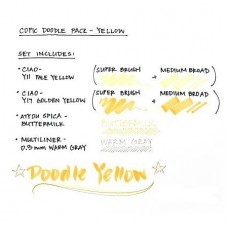 COPIC DOODLE PACK - YELLOW
SET INCLUDES:
• CIAO - (SUPER BRUSH + MEDIUM BROAD)
Y11 PALE YELLOW
• CIAO - (SUPER BRUSH + MEDIUM BROAD)
Y17 GOLDEN YELLOW
• ATYOU SPICA - BUTTERMILK
BUTTERMILK
• MULTILINER - WARM GRAY
0.3 MM WARM GRAY
Doodle Yellow